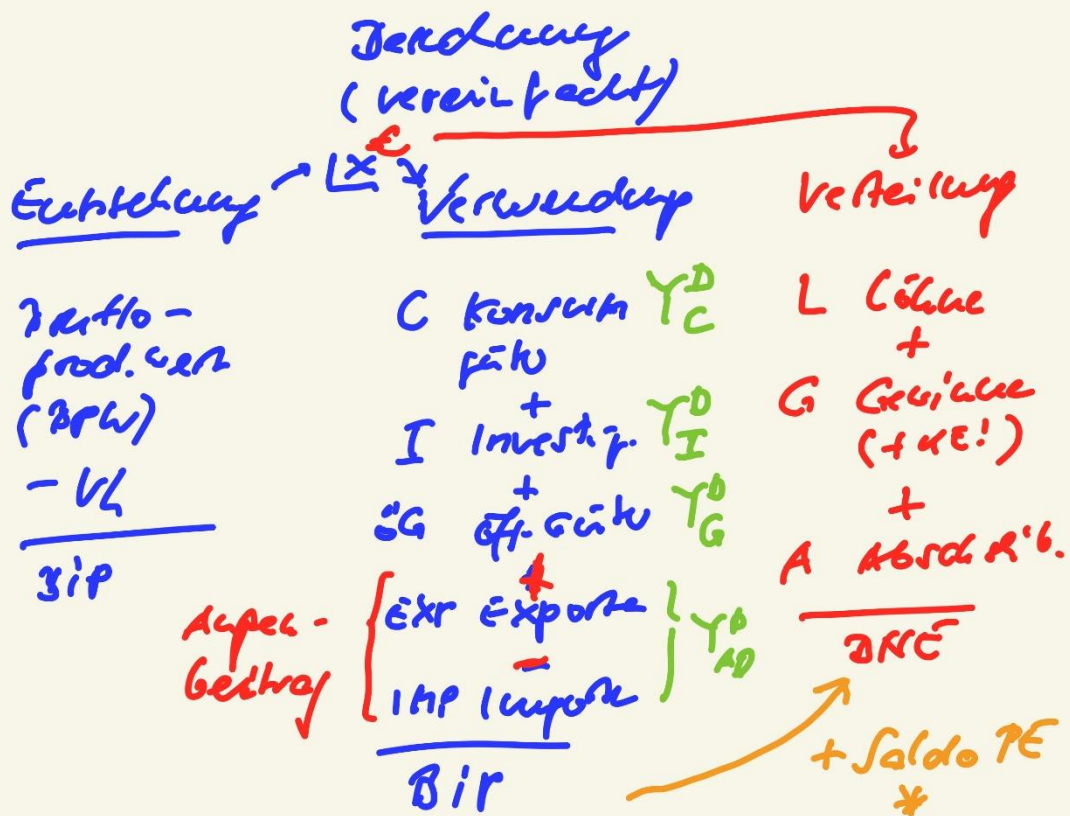 Berechnung
(vereinfacht)
€
Lx
Entstehung
Verwendung
Verteilung
Brutto-
prod.wert
(BPW)
- VL
BIP
C Konsum
güter
Y D C
+
I Investg.
Y D I
+
öG öff. Güter
Y D G
+
Außen-
beitrag
EXP Exporte
-
IMP Importe
Y D AD
BIP
L Löhne
+
G Gewinne
(+ KE!)
+
A Abschrb.
BNE
+ Saldo PE
*